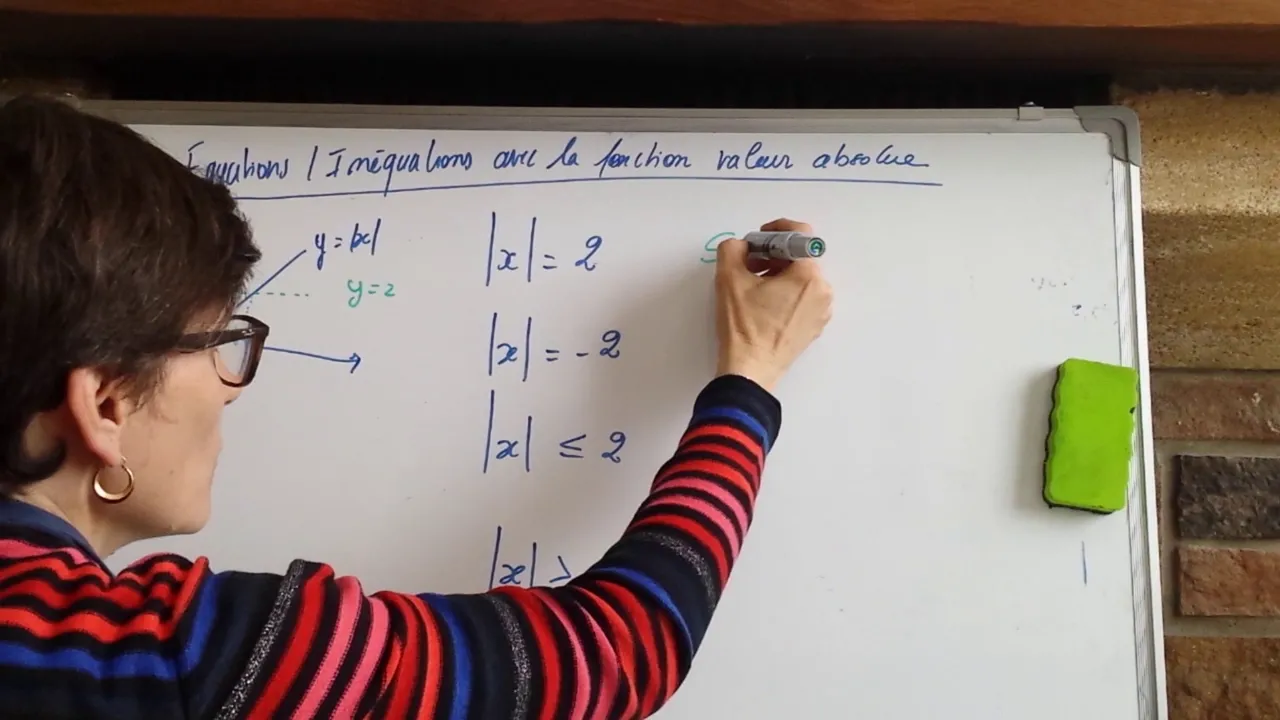 Équations / Inéquations avec la fonction valeur absolue
y = |x|
y = 2
|x| = 2
S
|x| = - 2
|x| ≤ 2
|x| >